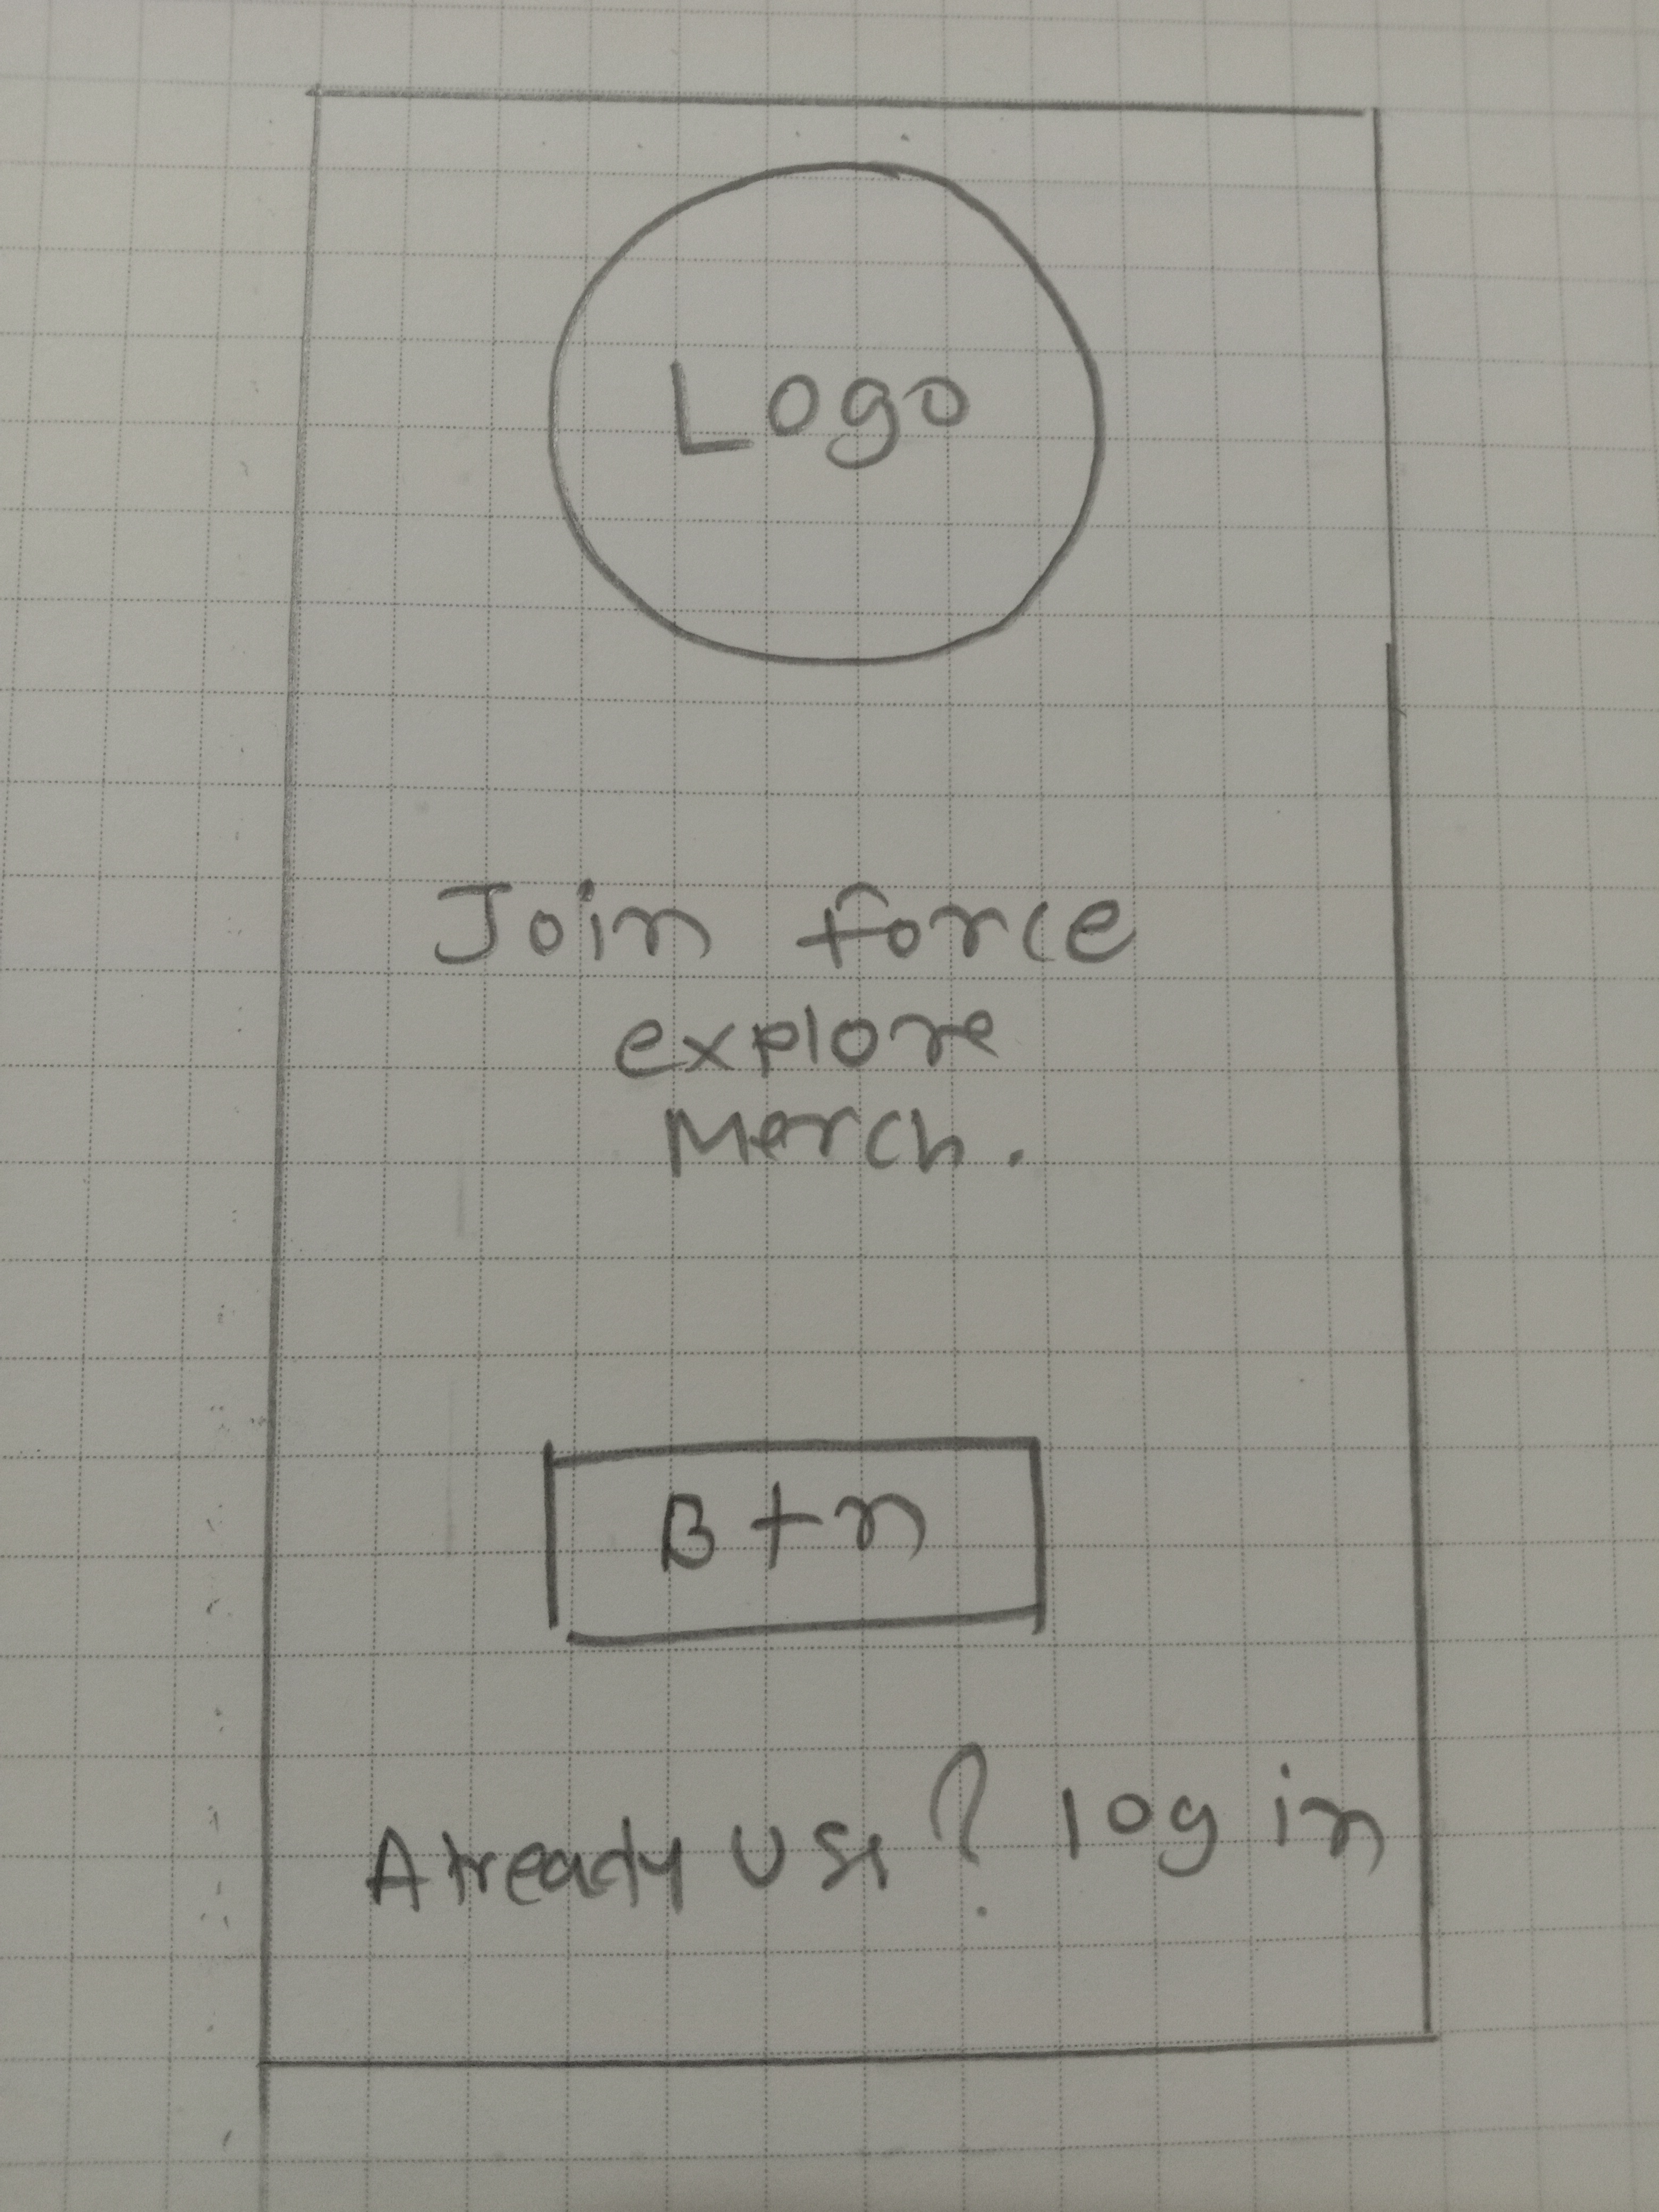 Logo
Join force
explore
Merch.
Btn
Already ? log in